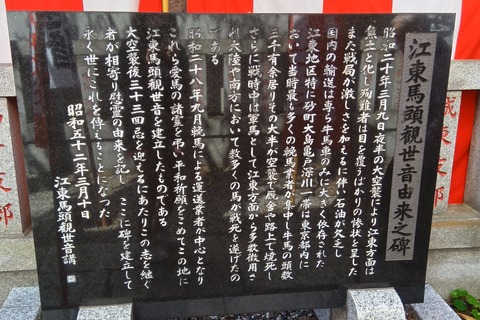 江東馬頭観世音由来之碑
昭和二十年三月九日夜半の大空襲により江東方面は
焦土と化し殉難者は目を覆うばかりの惨状を呈した
また戦局が激しさを加えるに伴い石油が欠乏し
国内の輸送は専ら牛馬車のみに大きく依存された
江東地区特に砂町大島亀戸深川一帯は東京都内に
おいて当時最も多くの輓馬業者が集中し牛馬の頭数
三千有余居りその大半が空襲で廐舎や路上で焼死し
さらに戦時中は軍馬として江東方面から多数徴用さ
れ大陸や南方において数多くの馬が戦死を遂げたの
である
昭和二十八年九月輓馬による運送業者が中心となり
これら愛馬の諸霊を弔い平和祈願をこめてこの地に
江東馬頭観世音を建立したものである
大空襲後三十三回忌を迎えるにあたりこの志を継ぐ
者が相寄り慰霊の由来を記し ここに碑を建立して
永く世にこれを伝えることになった
昭和五十二年三月十日
江東馬頭観世音講